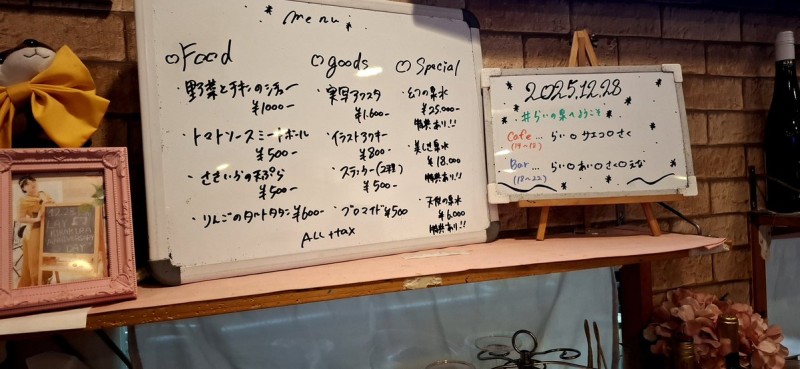 menu
○Food
・野菜とチキンのシチュー
¥1000-
・トマトソースミートボール
¥500-
・ささいかの天ぷら
¥500-
・りんごのタルトタタン ¥600-
○goods
・実写アクスタ
¥1,600-
・イラストアクキー
¥800-
・ステッカー(2種)
¥500-
・ブロマイド¥500
ALL +tax
○Special
・幻の泉水
¥25,000-
特典あり!!
・美しき泉水
¥18,000
特典あり!!
・天使の泉水
¥6,000
特典あり!!
2025.12.28
#らいの泉へようこそ
Cafe... らい○サエコ○さく
(14~18)
Bar ... らい○あい○さく○えな
(18~22)